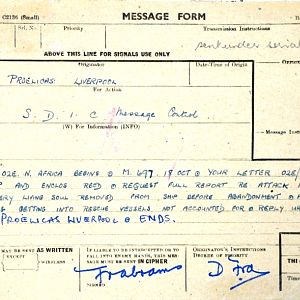 C2136 (Small)
MESSAGE FORM
Srl. No.
Priority
Transmission Instructions
ABOVE THIS LINE FOR SIGNALS USE ONLY
Originator
Date-Time of Origin
PROELICAS LIVERPOOL
For Action
S. D. I. C. Message Control
(W) For Information (INFO)
Message Instructions
O2E. N. AFRICA BEGINS @ M. 697. 18 OCT @ YOUR LETTER O2E/
AND ENCLOS RECD @ REQUEST FULL REPORT RE ATTACK
LIVING SOUL REMOVED FROM SHIP BEFORE ABANDONMENT @
GETTING INTO RESCUE VESSELS NOT ACCOUNTED FOR @ REPLY
PROELICAS LIVERPOOL @ ENDS.
MAY BE SENT AS WRITTEN
EXCEPT
IF LIABLE TO BE INTERCEPTED OR TO
FALL INTO ENEMY HANDS, THIS MES-
SAGE MUST BE SENT IN CIPHER
ORIGINATOR'S INSTRUCTIONS
DEGREE OF PRIORITY
SIGNED